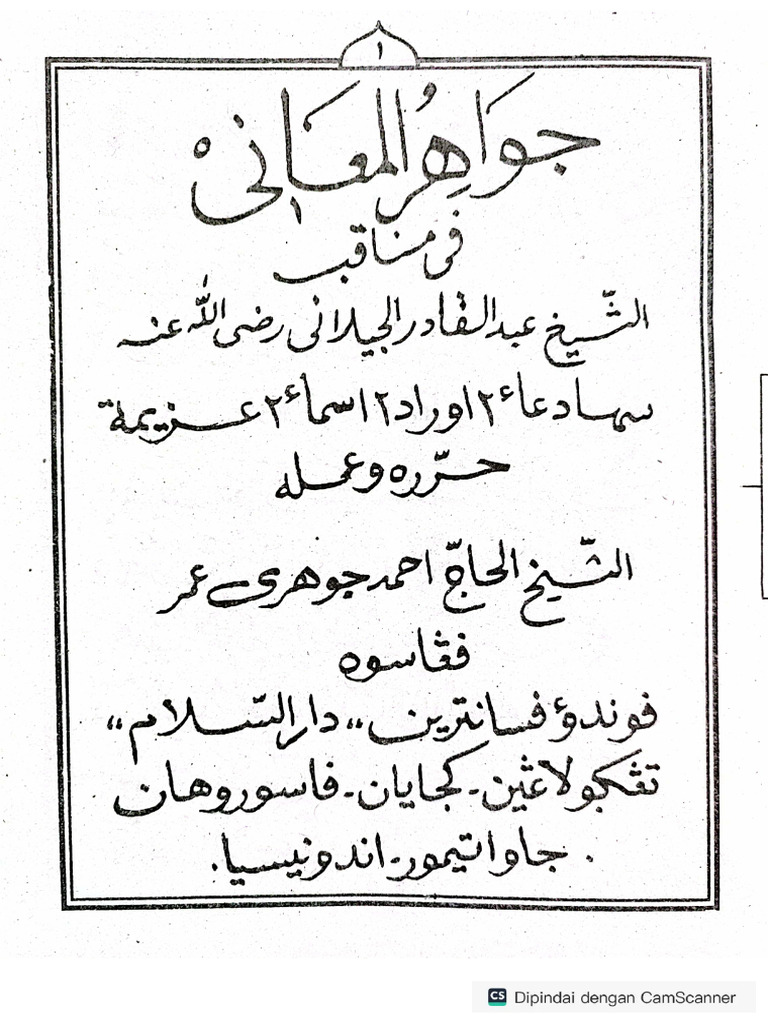 ١
جَوَاهِرُ الْمَعَانِى
فى مناقب
الشّيخ عبد القادر الجيلانى رضى الله عنه
سها دعاء٢ اوراد٢ اسماء٢ عزيمة
حرّره وعمله
الشّيخ الحاجّ احمد جوهرى عمر
فڠاسوه
فوندؤ فسانترين ,,دار السّلام,,
تڠكجولاڠين - كجايان - فاسوروهان
. جاوا تيمور - اندونيسيا .
CS Dipindai dengan CamScanner